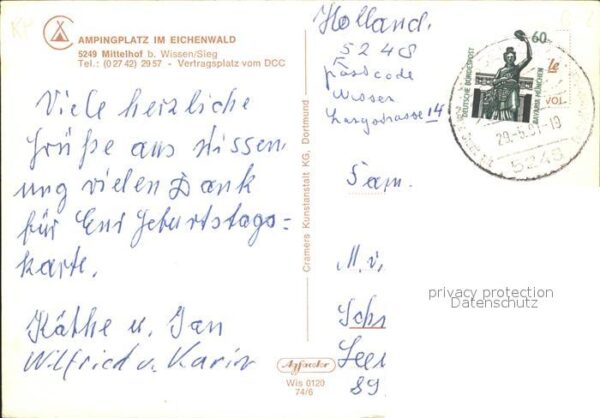 CAMPINGPLATZ IM EICHENWALD
5249 Mittelhof b. Wissen/Sieg
Tel.: (0 27 42) 29 57 - Vertragsplatz vom DCC
Viele herzliche
Grüße aus Wissen
ung vielen Dank
für Eure Geburtstags=
karte.
Käthe u. Jan
Wilfried u. Karin
Cramers Kunstanstalt KG, Dortmund
Wis 0120
74/6
Holland.
5248
postcode
Wissen
14
60
DEUTSCHE BUNDESPOST
BAVARIA MÜNCHEN
5248
Fam.
M. v.
Sch
89
privacy protection
Datenschutz